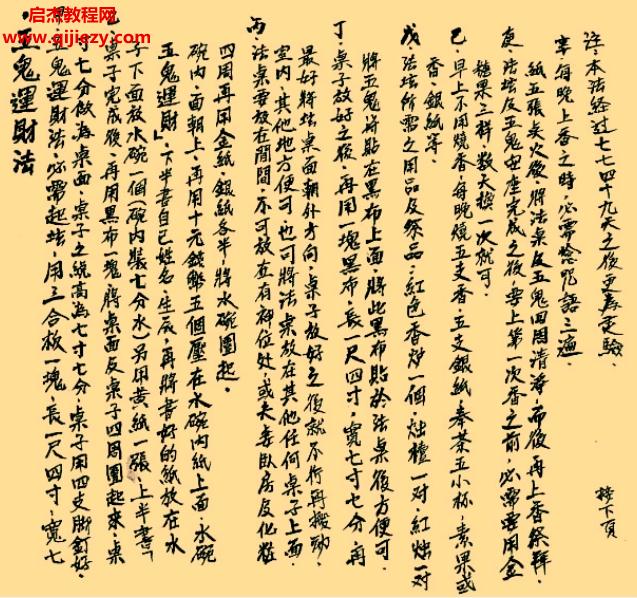 启杰教程网
www.qijiezy.com
五鬼運財法
五鬼運財法,必需起坛,用三合板一塊,長一尺四寸,寬七
寸七分做為桌面,桌子之總高為七寸七分,桌子用四支脚釘好。
桌子完成後,再用黑布一塊將桌面反桌子四周圍起來,桌
子下面放水碗一個(碗內裝七分水)另用黄紙一張,上半書「
五鬼運財」下半書自己姓名、生辰,再將書好的紙放在水
碗內,面朝上,再用十元錢幣五個壓在水碗內紙上面,水碗
四周再用金紙、銀紙各半將水碗圍起。
丙、法桌要放在閒間,不可放在有神位处,或夫妻臥房反化粧
室內,其他地方便可也可將法桌放在其他任何桌子上面,
最好將坛桌面朝外方向,桌子放好之後就不行再搬動。
丁、桌子放好之後,再用一塊黑布,長一尺四寸,寬七寸七分,再
將五鬼符貼在黑布上面,將此黑布貼於法桌後方便可。
戊、法坛所需之用品及祭品:紅色香炉一個,烛檯一对,紅烛一对
香、銀紙等。
己、早上不用燒香,每晚燒五支香,五支銀紙,奉茶五小杯,素果或
糖果三样,数天換一次就可。
庚、法坛反五鬼安座完成之後,要上第一次香之前,必需要用金
紙五張炎火後,將法桌反五鬼四周清淨,而後再上香祭拜。
辛、每晚上香之時,必需唸咒語三遍。
註、本法经过七七四十九天之後更為灵驗。
接下頁